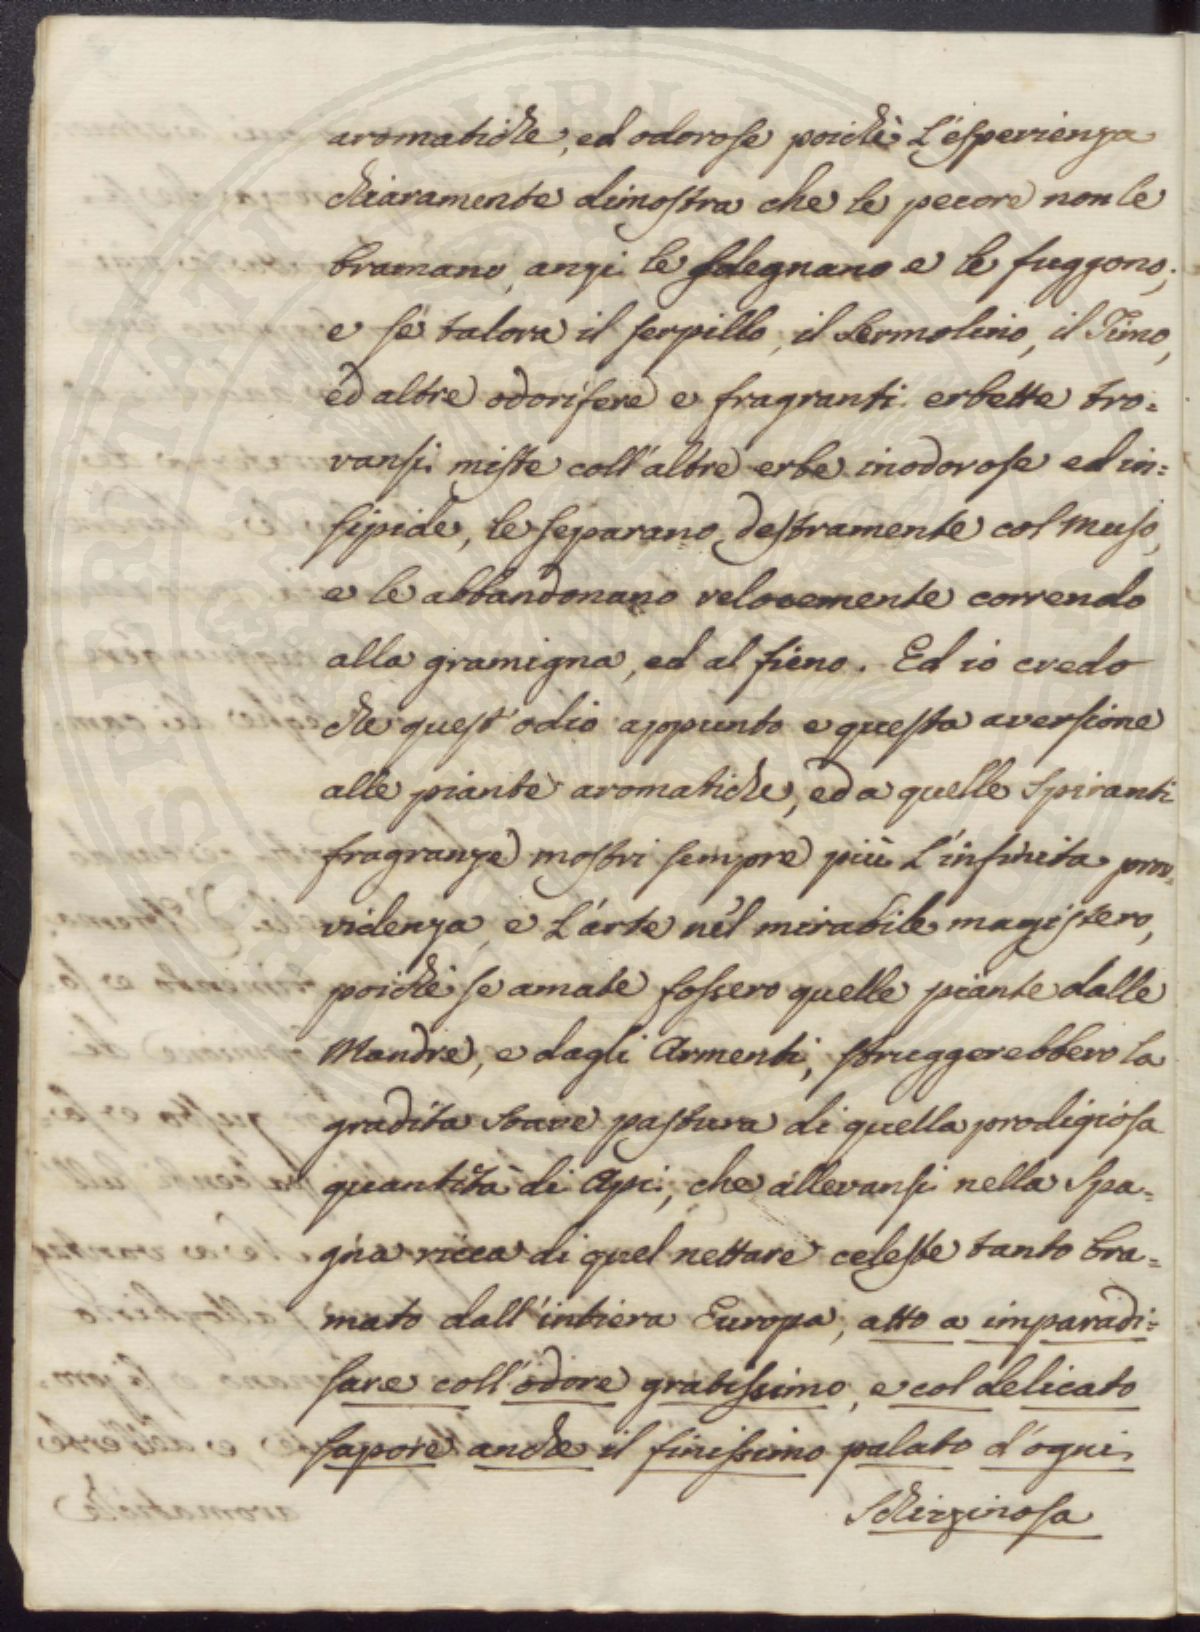 aromatiche, ed odorose poichè L'esperienza
chiaramente dimostra che le pecore non le
bramano, anzi le sdegnano e le fuggono;
e se talora il serpillo, il Sermolino, il Timo,
ed altre odorifere e fragranti erbette tro=
vansi miste coll'altre erbe inodorose ed in=
sipide, le separano destramente col muso,
e le abbandonano velocemente correndo
alla gramigna, ed al fieno. Ed io credo
che quest'odio appunto e questa aversione
alle piante aromatiche, ed a quelle spiranti
fragranze mostri sempre più L'infinita prov=
videnza, e L'arte nel mirabile magistero,
poichè se amate fossero quelle piante dalle
Mandre, e dagli Armenti, struggerebbero la
gradita soave pastura di quella prodigiosa
quantità di Api, che allevansi nella Spa=
gna ricca di quel nettare celeste tanto bra=
mato dall'intiera Europa, atto a imparadi=
sare coll'odore gratissimo, e col delicato
sapore anche il finissimo palato d'ogni
Schizzinosa